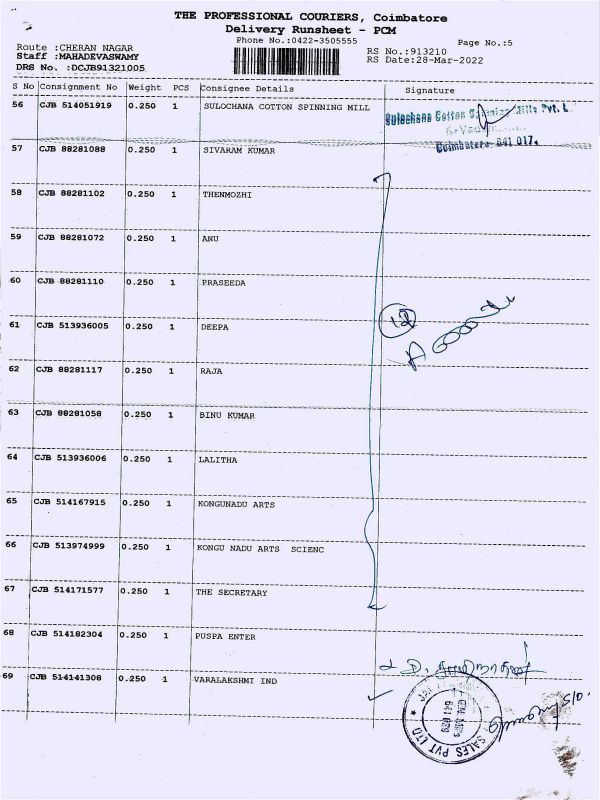 THE PROFESSIONAL COURIERS, Coimbatore
Delivery Runsheet - PCM
Phone No.:0422-3505555
Page No.:5
Route :CHERAN NAGAR
Staff :MAHADEVASWAMY
DRS No. :DCJB91321005
RS No.:913210
RS Date:28-Mar-2022
S No Consignment No Weight PCS Consignee Details Signature
56 CJB 514051919 0.250 1 SULOCHANA COTTON SPINNING MILL
Sulochana Cotton Spinning Mills Pvt. L
Coimbatore-641 017.
57 CJB 88281088 0.250 1 SIVARAM KUMAR
58 CJB 88281102 0.250 1 THENMOZHI
59 CJB 88281072 0.250 1 ANU
60 CJB 88281110 0.250 1 PRASEEDA
61 CJB 513936005 0.250 1 DEEPA
12
62 CJB 88281117 0.250 1 RAJA
63 CJB 88281058 0.250 1 BINU KUMAR
64 CJB 513936006 0.250 1 LALITHA
65 CJB 514167915 0.250 1 KONGUNADU ARTS
66 CJB 513974999 0.250 1 KONGU NADU ARTS SCIENC
67 CJB 514171577 0.250 1 THE SECRETARY
68 CJB 514182304 0.250 1 PUSPA ENTER
69 CJB 514141308 0.250 1 VARALAKSHMI IND
SALES PVT LTD